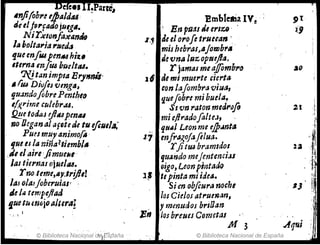 Defeos II.Parte,
ansi sobre espaldas
de el forçado juega.
Ni Yxion saxando
la boltaria rueda
que en sus penas hizo
eterna en sus bueltas.
Ni tan impta Erynnis
a sus Diuses venga,
quando sobre Pentheo
esgrime culebras.
Que todas estas penas
no llegan al açote de tu escuela;
Pues muy animosa
que es la niña? tiembla
de el aire si mueue
las tiernas ojuelas.
Yno teme, ay, triste!
las olas soberuias
de la tempestad
que tu enojo altera!
En
Emblema IV.
91
En puas de erizo
19
el oro se truecan
15
mis hebras, a sombra
de vna luz, opuesta.
Y jamas me assombro
20
de mi muerte cierta
16
con la sombra viua,
que sobre mi buela.
Si vn raton medroso
21
mi estrado saltea,
qual Leon me espanta
17
en fragosa selua.
Y si tus bramidos
22
quando me sentencias
oigo, Leon pintado
18
te pinta mi idea.
Si en obscura noche
23
los Cielos atruenan,
y menudos brillan
los breues Cometas
M 3
Aqui
© Biblioteca Nacional de España
© Biblioteca Nacional de España